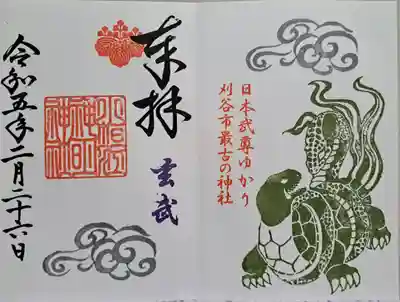 日本武尊ゆかり
刈谷市最古の神社
奉拝
玄武
小垣江
神明
神社
令和五年二月二十六日